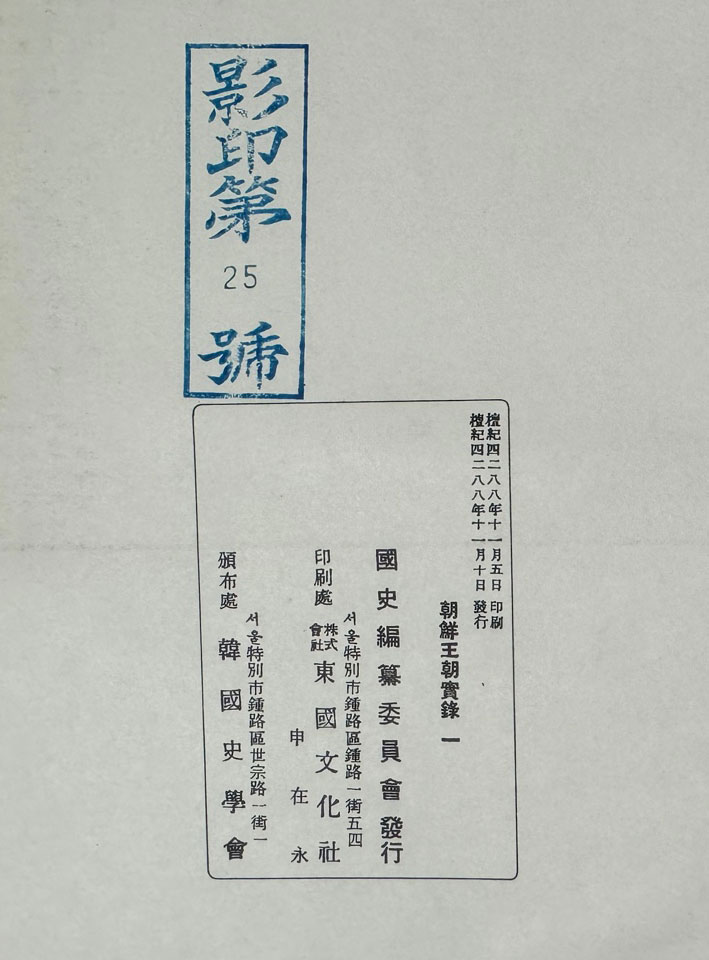 影印第 25 號
檀紀四二八八年十一月五日 印刷
檀紀四二八八年十一月十日 發行
朝鮮王朝實錄 一
國史編纂委員會 發行
서울特別市鍾路區鍾路一街五四
印刷處 株式會社 東國文化社
申在永
서울特別市鍾路區世宗路一街一
頒布處 韓國史學會